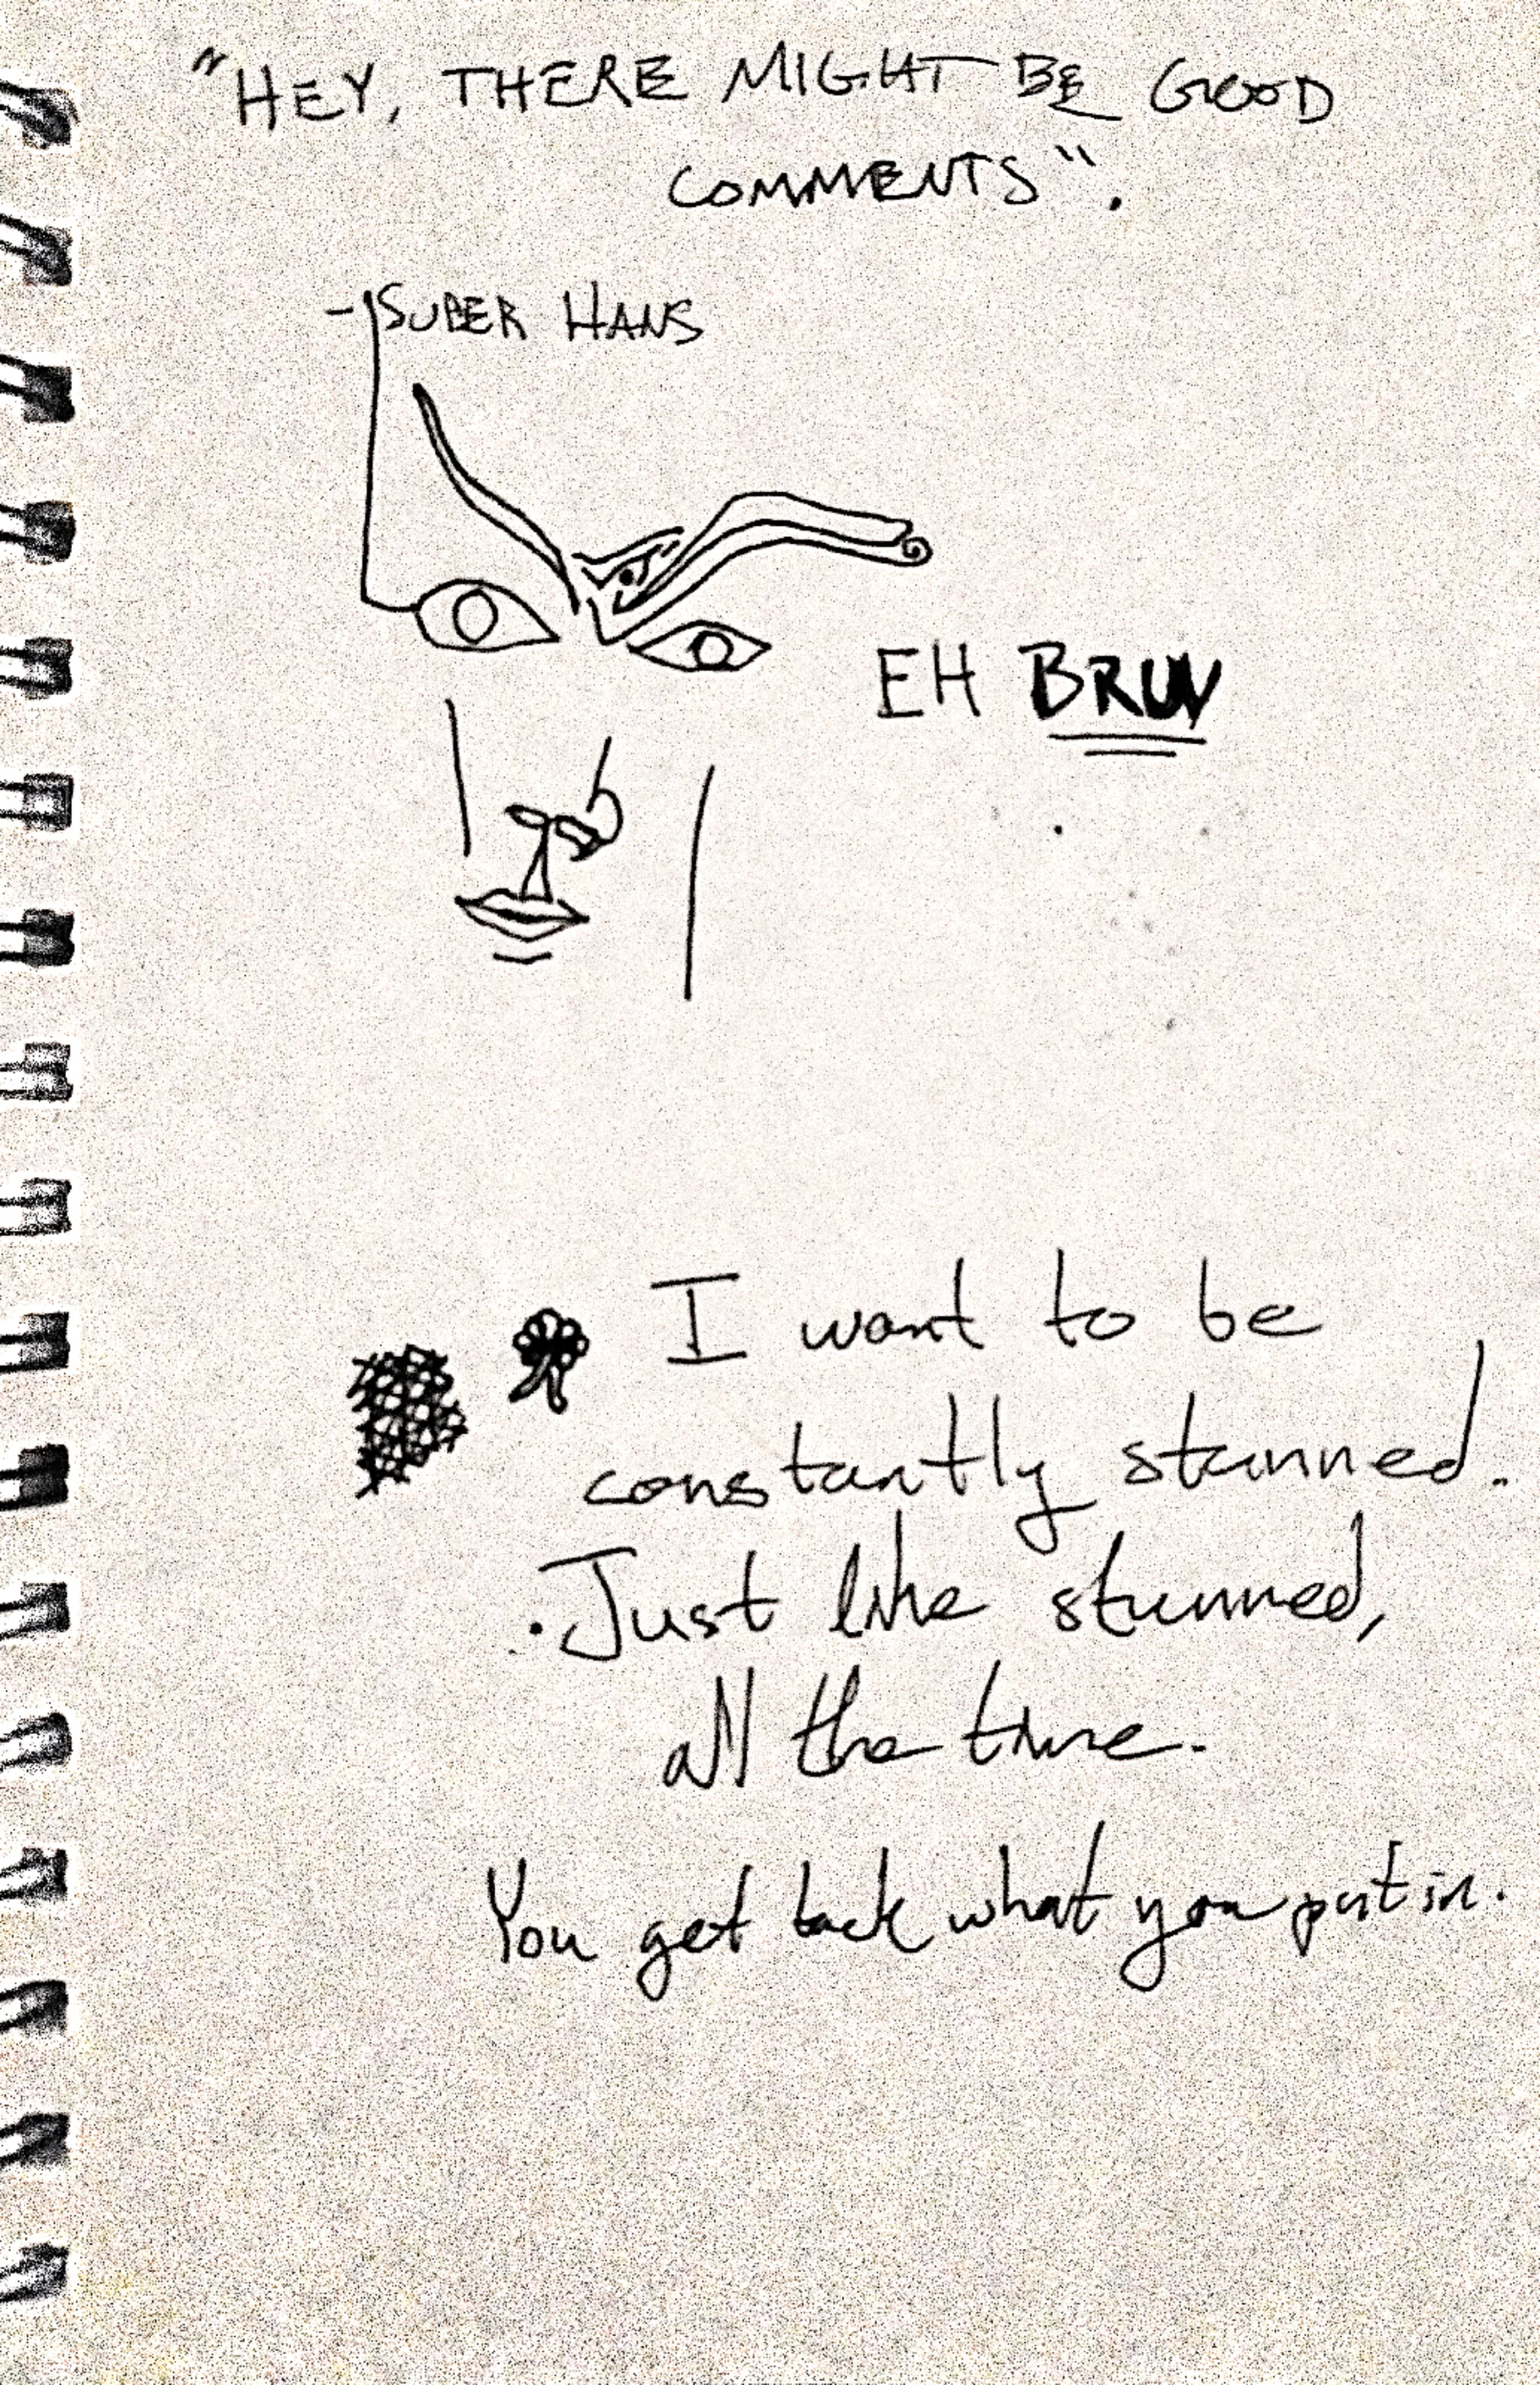 "HEY, THERE MIGHT BE GOOD
COMMENTS".
- SUPER HANS
EH BRUV
I want to be
constantly stunned.
Just like stunned,
all the time.
You get back what you put in.